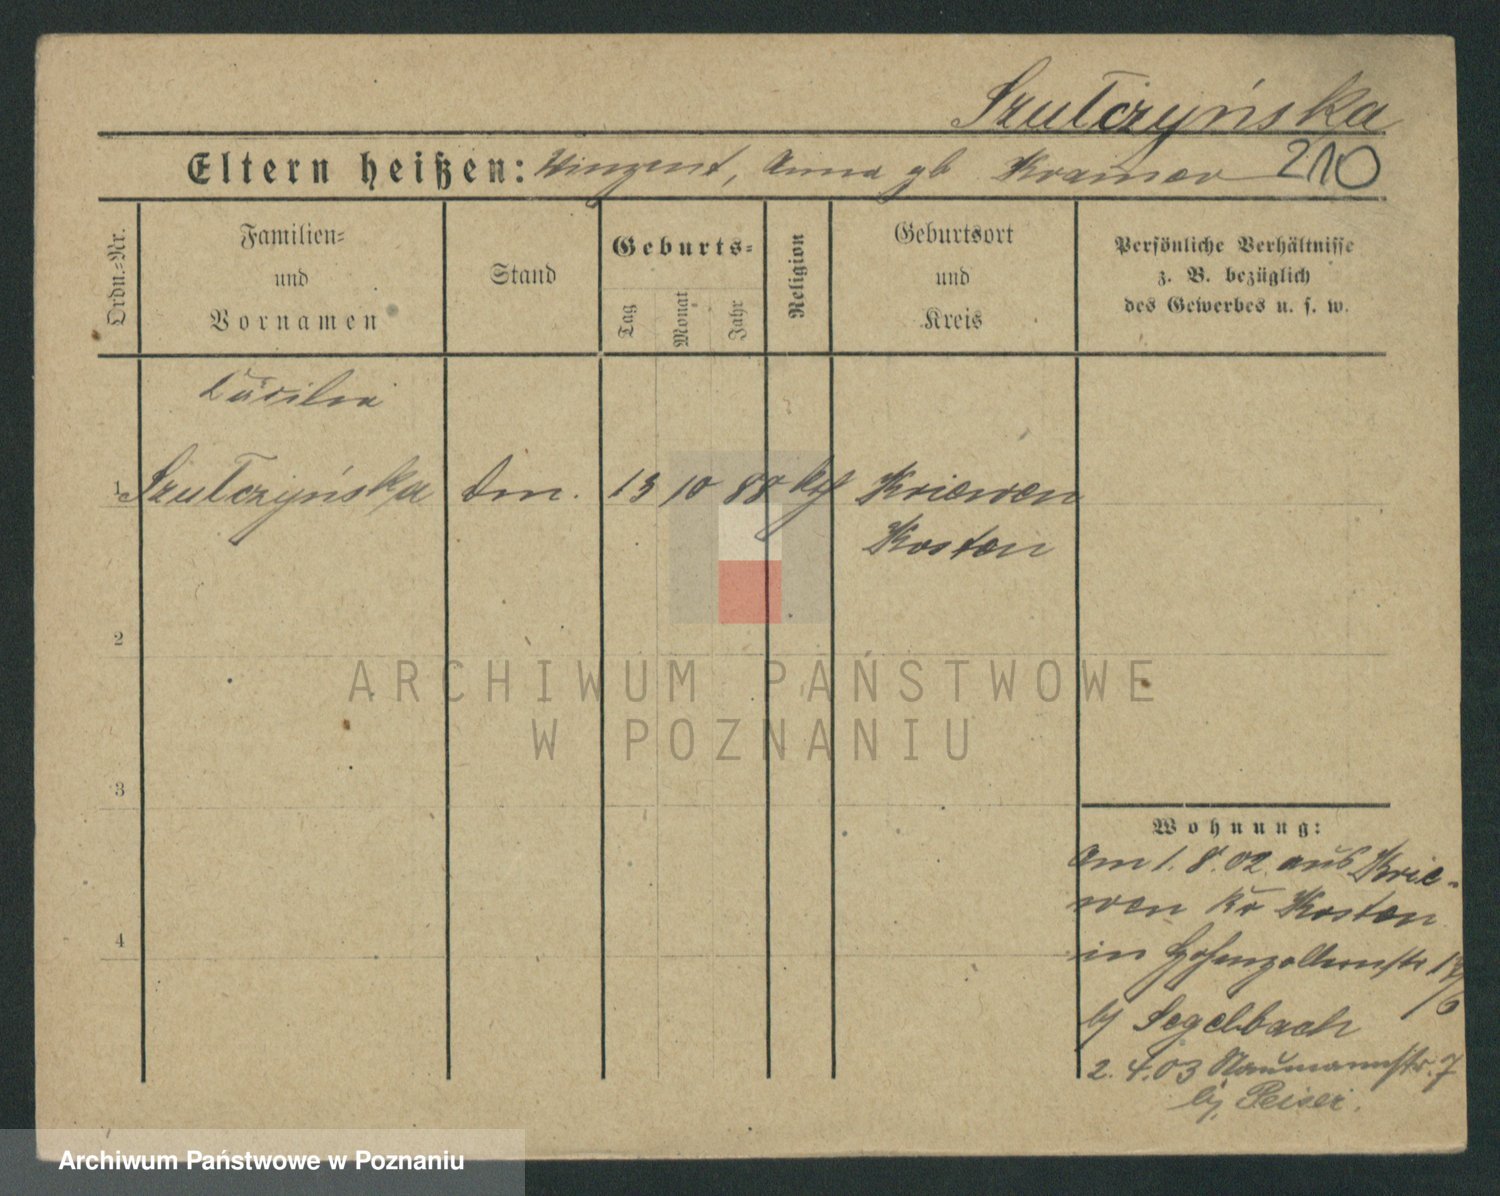 Szulczyńska
Eltern heißen: Winzent, Anna gb Kramer
210
Ordn.-Nr.
Familien-
und
Vornamen
Stand
Geburts-
Tag
Monat
Jahr
Religion
Geburtsort
und
Kreis
Persönliche Verhältnisse
z. B. bezüglich
des Gewerbes u. s. w.
Cäcilia
1 Szulczyńska Dm. 13 10 88 kth Kriewen
Kosten
2
3
4
Wohnung:
Am 1.8.02 aus Krie-
wen Kr Kosten
in Hohenzollernstr
bj Segelbach
2.4.03 Naumannstr. 7
bj. Peiser.
ARCHIWUM PAŃSTWOWE
W POZNANIU
Archiwum Państwowe w Poznaniu